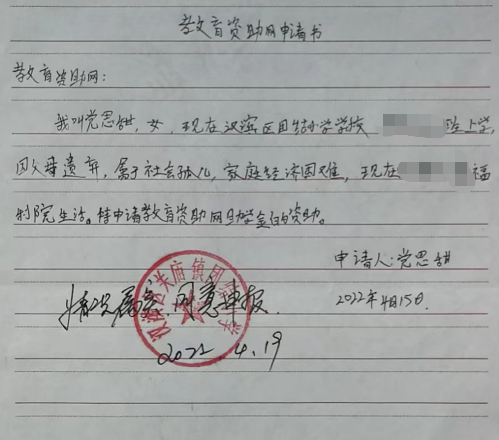 教育资助网申请书
教育资助网：
我叫党思甜，女，现在汉滨区田坝小学学校 班上学，
因父母遗弃，属于社会孤儿，家庭经济困难，现在 福
利院生活。特申请教育资助网助学金的资助。
申请人：党思甜
2022年4月15日
情况属实，同意申报。
2022.4.19
汉滨区关庙镇田 小学